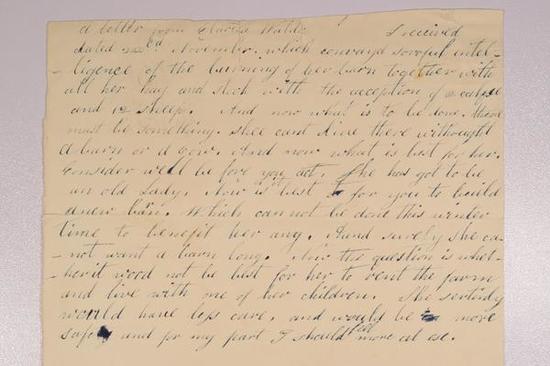 a letter from Clarisa Waldo I received
dated 22d November. which convayd soroful intel-
-ligence of the burning of her barn together with
all her hay and stock with the acception of a calf
and 12 sheep. And now what is to be done. thare
must be something. shee cant live there withought
a barn or a Cow. And now what is best for her.
Consider well be fore you act. She has got to be
an old Lady. Now is it best for you to build
anew barn. Which can not be done this winter
time to benefit her any. Aand surely she ca-
-not want a barn long. Now the question is whet-
-her it wood not be best for her to rent the farm
and live with one of her children. She sertinly
world have less care, and would be more
safe and for my part I should feel more at ese.